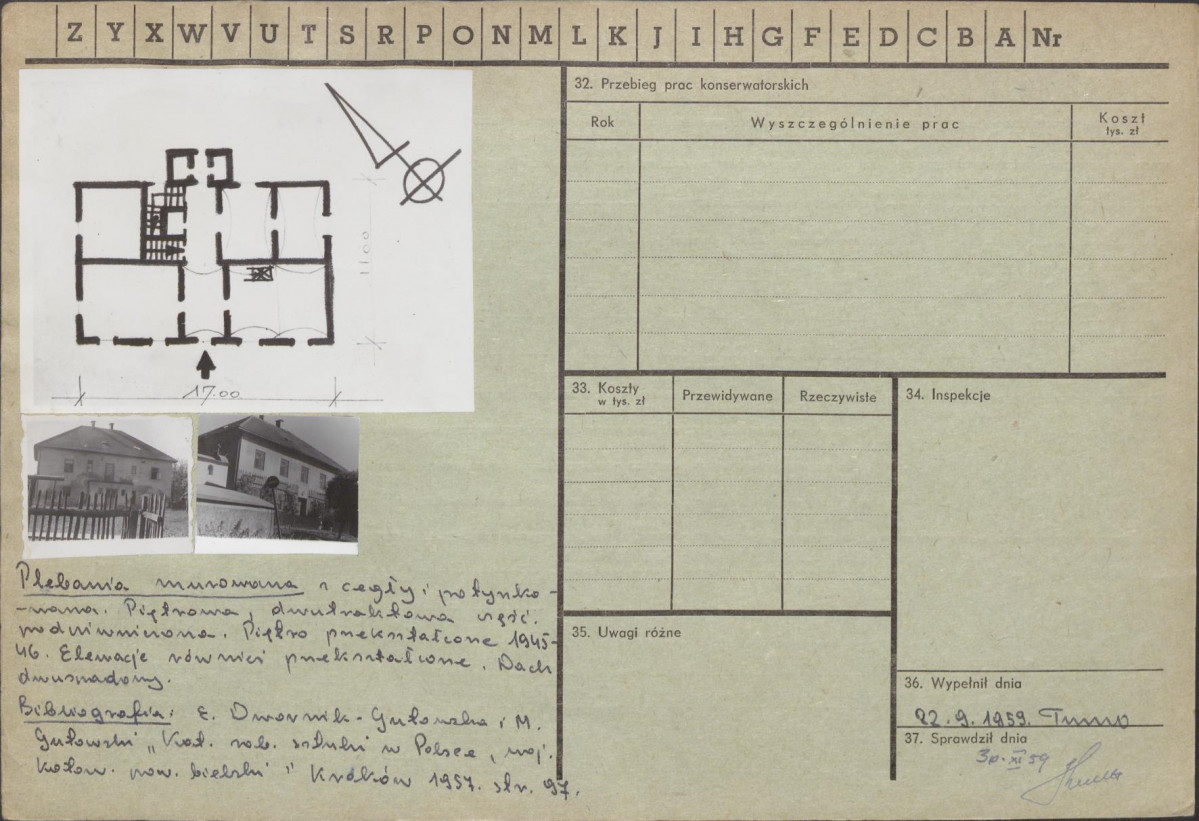 Z Y X W V U T S R P O N M L K J I H G F E D C B A Nr
1100
17.00
Plebania murowana z cegły i potynko-
-wana. Piętrowa, dwutraktowa część.
podpiwniczona. Piętro przekształcone 1945-
46. Elewacje również przekształcone. Dach
dwuspadowy.
Bibliografia: E. Dwornik-Gutowska i M.
Gutowski „Kat. zab. sztuki w Polsce, woj.
katow. pow. bielski" Kraków 1957. str. 97.
32. Przebieg prac konserwatorskich
Rok
Wyszczególnienie prac
Koszt
tys. zł
33. Koszty
w tys. zł
Przewidywane
Rzeczywiste
34. Inspekcje
35. Uwagi różne
36. Wypełnił dnia
22.9.1959.
37. Sprawdził dnia
30.XI 59